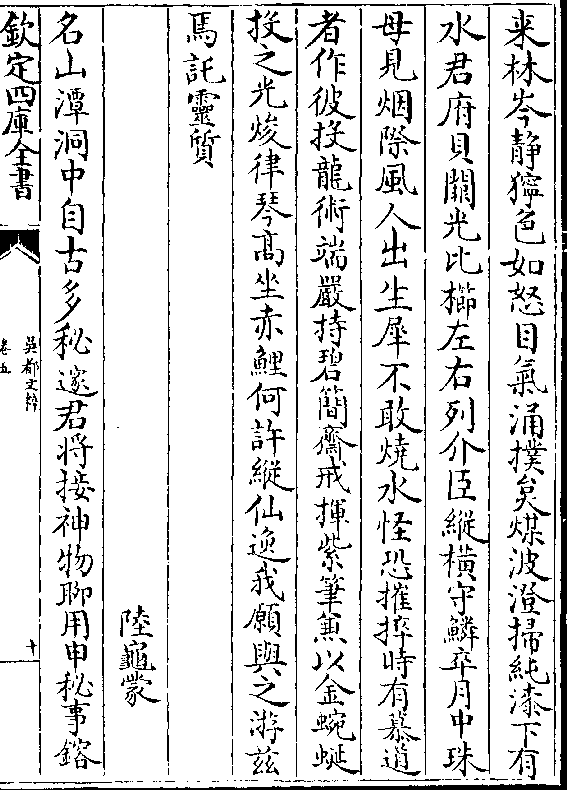 来林岑静獰色如怒目氣涌撲炱煤波澄掃純漆下有
水君府貝闕光比櫛左右列介臣縱橫守鱗卒月中珠
母見烟際風人出生犀不敢燒水怪恐摧捽時有慕道
者作彼投龍術端嚴持碧簡齋戒揮紫筆兼以金蜿蜒
投之光焌律琴高坐赤鯉何許縱仙逸我願與之游兹
焉託靈質
陸龜蒙
名山潭洞中自古多秘邃君將接神物聊用申秘事鎔
欽定四庫全書
吳都文粹
卷五
十